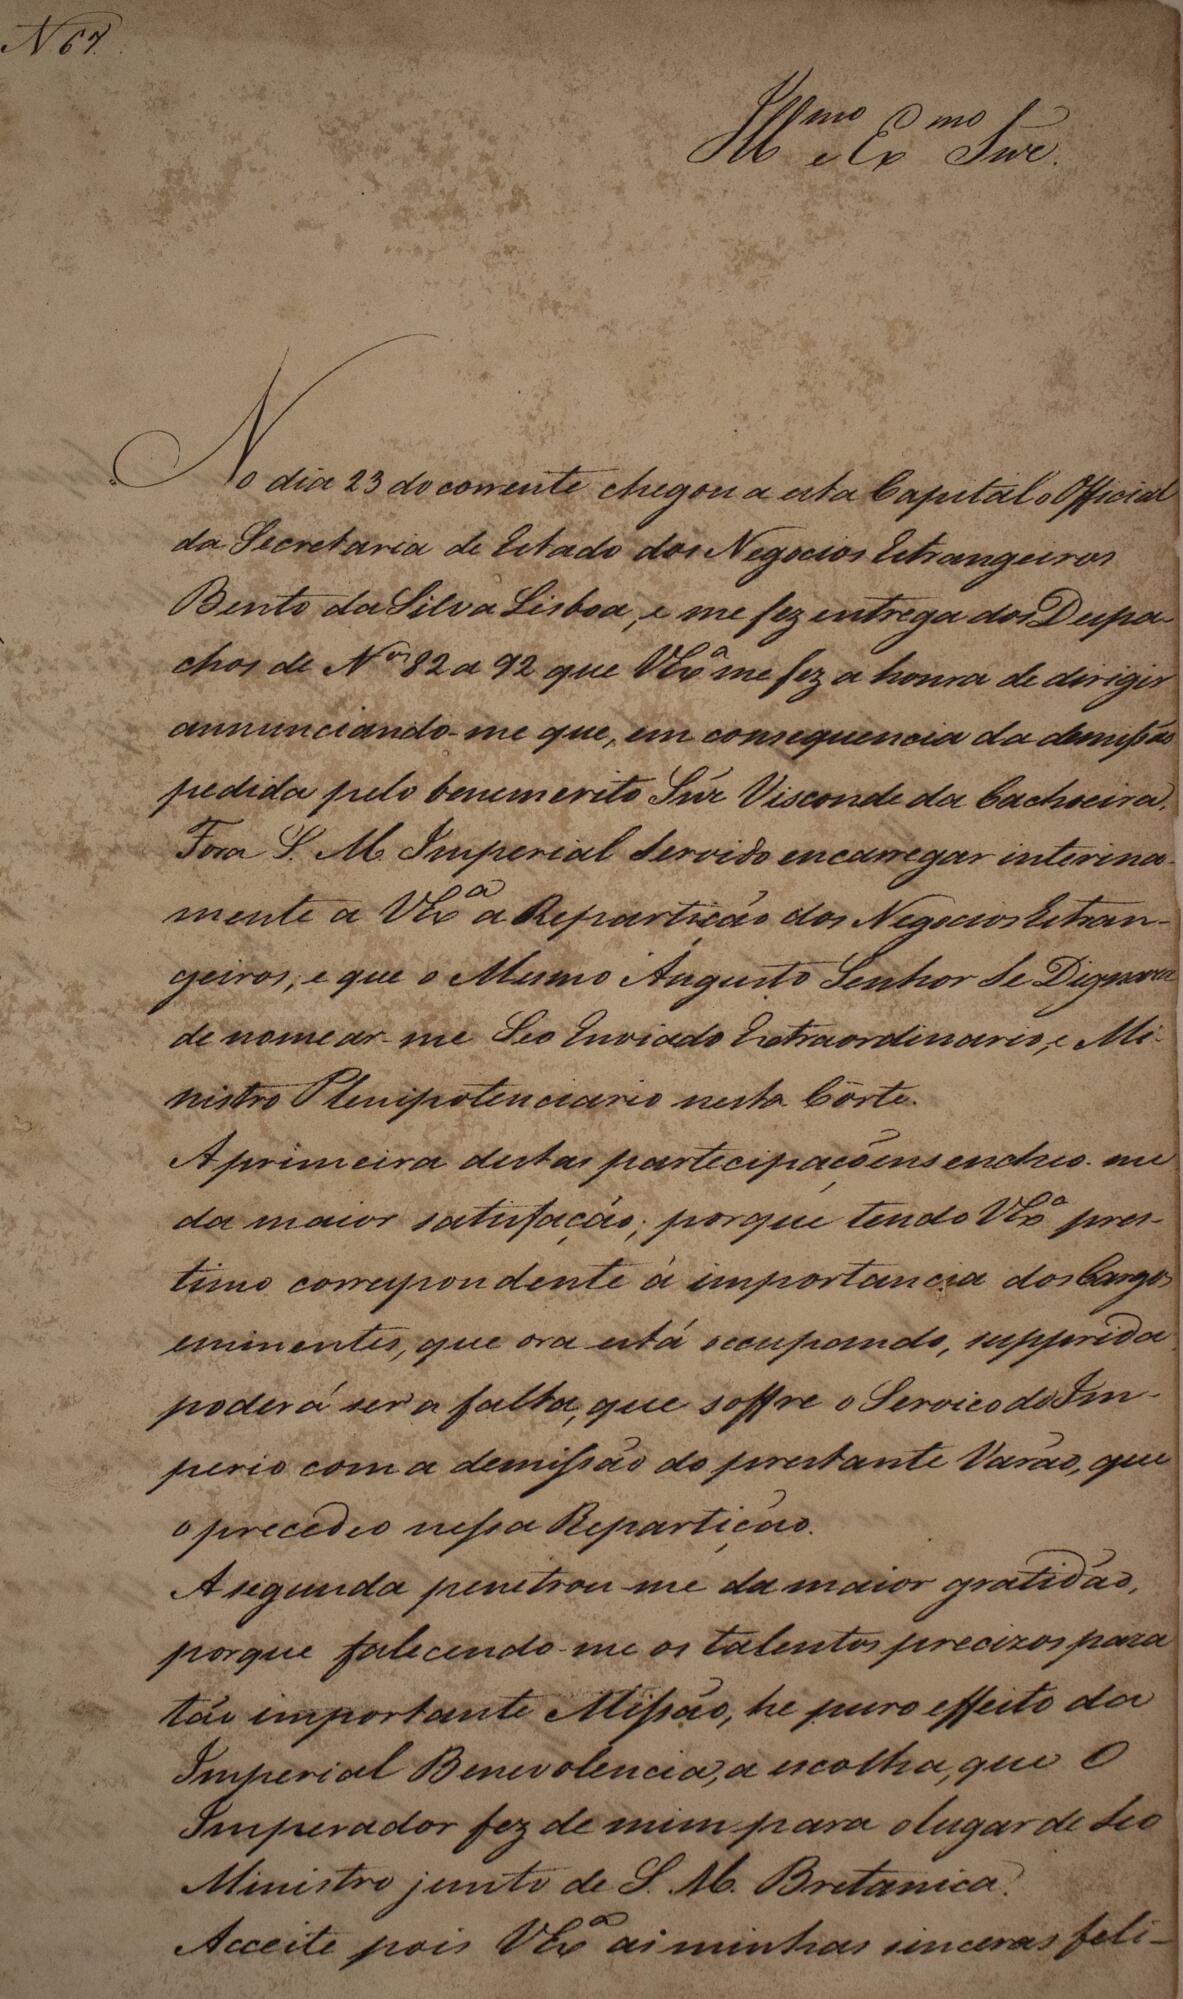 N 67.
Illmo e Exmo Snr.
No dia 23 do corrente chegou a esta Capital o Official
da Secretaria de Estado dos Negocios Estrangeiros
Bento da Silva Lisboa, e me fez entrega dos Despa-
chos de Nos 82 a 92 que VExa me fez a honra de dirigir
annunciando-me que, em consequencia da demissão
pedida pelo benemerito Snr Visconde da Cachoeira,
Fora S. M. Imperial Servido encarregar interina-
mente a VExa a Repartição dos Negocios Estran-
geiros, e que o Mesmo Augusto Senhor Se Dignara
de nomear-me Seo Enviado Extraordinario, e Mi-
nistro Plenipotenciario nesta Côrte.
A primeira destas partecipaçoens encheo-me
da maior satisfação; porque tendo VExa pres-
timo correspondente á importancia dos Cargos
eminentes, que ora está occupando, supprida
poderá ser a falta, que soffre o Serviço do Im-
perio com a demissão do prestante Varão, que
o precedeo nessa Repartição.
A segunda penetrou-me da maior gratidão,
porque falecendo-me os talentos precizos para
tão importante Missão, he puro effeito da
Imperial Benevolencia, a escolha, que O
Imperador fez de mim para o lugar de Seo
Ministro junto de S. M. Bretanica.
Acceite pois VExa as minhas sinceras feli-